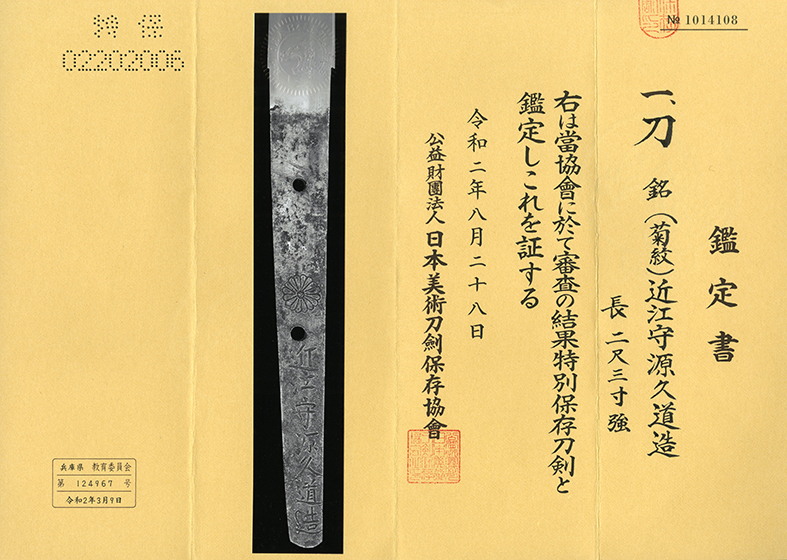 № 1014108
鑑定書
一、刀 銘(菊紋)近江守源久道造
長 二尺三寸強
右は當協會に於て審査の結果特別保存刀剣と
鑑定しこれを証する
令和二年八月二十八日
公益財團法人日本美術刀劍保存協會
近江守源久道造
特保
02202006
兵庫県 教育委員会
第 124967 号
令和2年3月9日